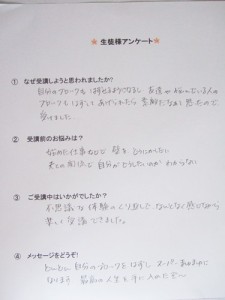 ★ 生徒様アンケート ★
① なぜ受講しようと思われましたか?
自分のブロックも はずせるようになるし 友達や 悩んでいる人の
ブロックも はずして あげられたら 素敵だなぁと 思ったので
受けました
② 受講前のお悩みは?
始めた仕事などで 壁を
自分が どうしたいのか わからない
③ ご受講中はいかがでしたか?
不思議な 体験の くり返しで
楽しく 受講 できました。
④ メッセージをどうぞ!
自分の ブロックを はずし スーパー
なります 最高の 人生を 手に 入れたぞ〜